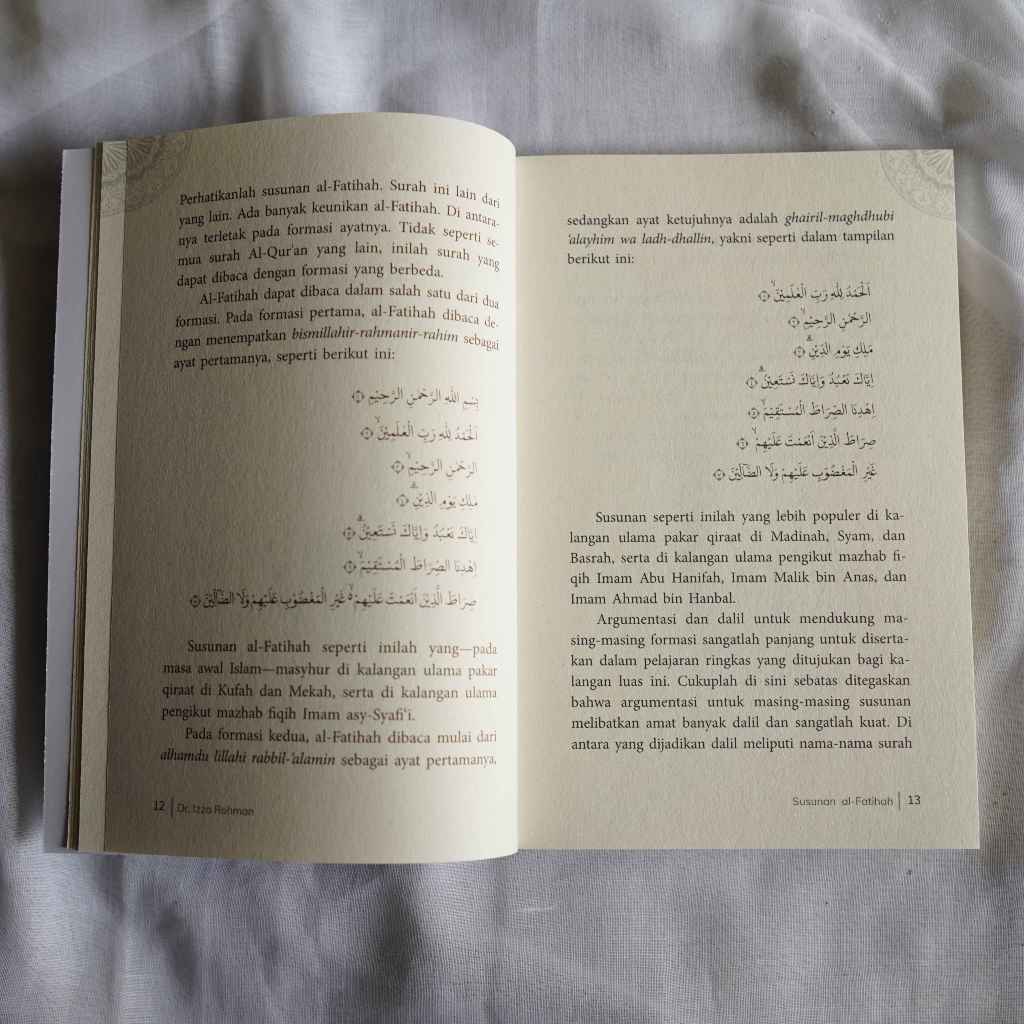 Perhatikanlah susunan al-Fatihah. Surah ini lain dari
yang lain. Ada banyak keunikan al-Fatihah. Di antara-
nya terletak pada formasi ayatnya. Tidak seperti se-
mua surah Al-Qur'an yang lain, inilah surah yang
dapat dibaca dengan formasi yang berbeda.
Al-Fatihah dapat dibaca dalam salah satu dari dua
formasi. Pada formasi pertama, al-Fatihah dibaca de-
ngan menempatkan bismillahir-rahmanir-rahim sebagai
ayat pertamanya, seperti berikut ini:
بِسْمِ اللّٰهِ الرَّحْمٰنِ الرَّحِيْمِ ۝١
اَلْحَمْدُ لِلّٰهِ رَبِّ الْعٰلَمِيْنَۙ ۝٢
الرَّحْمٰنِ الرَّحِيْمِۙ ۝٣
مٰلِكِ يَوْمِ الدِّيْنِۗ ۝٤
اِيَّاكَ نَعْبُدُ وَاِيَّاكَ نَسْتَعِيْنُۗ ۝٥
اِهْدِنَا الصِّرَاطَ الْمُسْتَقِيْمَۙ ۝٦
صِرَاطَ الَّذِيْنَ اَنْعَمْتَ عَلَيْهِمْ ەۙ غَيْرِ الْمَغْضُوْبِ عَلَيْهِمْ وَلَا الضَّاۤلِّيْنَ ۝٧
Susunan al-Fatihah seperti inilah yang—pada
masa awal Islam—masyhur di kalangan ulama pakar
qiraat di Kufah dan Mekah, serta di kalangan ulama
pengikut mazhab fiqih Imam asy-Syafi'i.
Pada formasi kedua, al-Fatihah dibaca mulai dari
alhamdu lillahi rabbil-'alamin sebagai ayat pertamanya,
12 | Dr. Izza Rohman
sedangkan ayat ketujuhnya adalah ghairil-maghdhubi
'alayhim wa ladh-dhallin, yakni seperti dalam tampilan
berikut ini:
اَلْحَمْدُ لِلّٰهِ رَبِّ الْعٰلَمِيْنَۙ ۝١
الرَّحْمٰنِ الرَّحِيْمِۙ ۝٢
مٰلِكِ يَوْمِ الدِّيْنِۗ ۝٣
اِيَّاكَ نَعْبُدُ وَاِيَّاكَ نَسْتَعِيْنُۗ ۝٤
اِهْدِنَا الصِّرَاطَ الْمُسْتَقِيْمَۙ ۝٥
صِرَاطَ الَّذِيْنَ اَنْعَمْتَ عَلَيْهِمْۙ ۝٦
غَيْرِ الْمَغْضُوْبِ عَلَيْهِمْ وَلَا الضَّاۤلِّيْنَ ۝٧
Susunan seperti inilah yang lebih populer di ka-
langan ulama pakar qiraat di Madinah, Syam, dan
Basrah, serta di kalangan ulama pengikut mazhab fi-
qih Imam Abu Hanifah, Imam Malik bin Anas, dan
Imam Ahmad bin Hanbal.
Argumentasi dan dalil untuk mendukung ma-
sing-masing formasi sangatlah panjang untuk diserta-
kan dalam pelajaran ringkas yang ditujukan bagi ka-
langan luas ini. Cukuplah di sini sebatas ditegaskan
bahwa argumentasi untuk masing-masing susunan
melibatkan amat banyak dalil dan sangatlah kuat. Di
antara yang dijadikan dalil meliputi nama-nama surah
Susunan al-Fatihah | 13